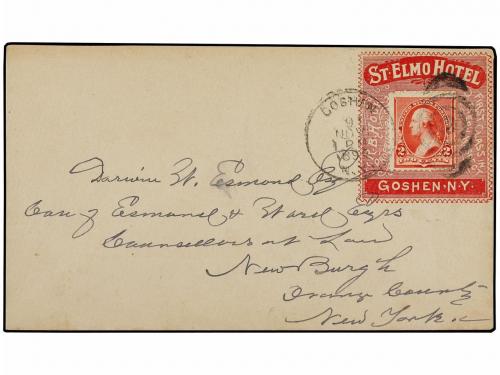 ST. ELMO HOTEL
FIRST CLASS
2 2
GOSHEN. N.Y.
GOSHEN
NOV
Darwin W. Esmond Esq
Care of Esmond & Ward Esqrs
Counsellors at Law
New Burgh
Orange County
New York